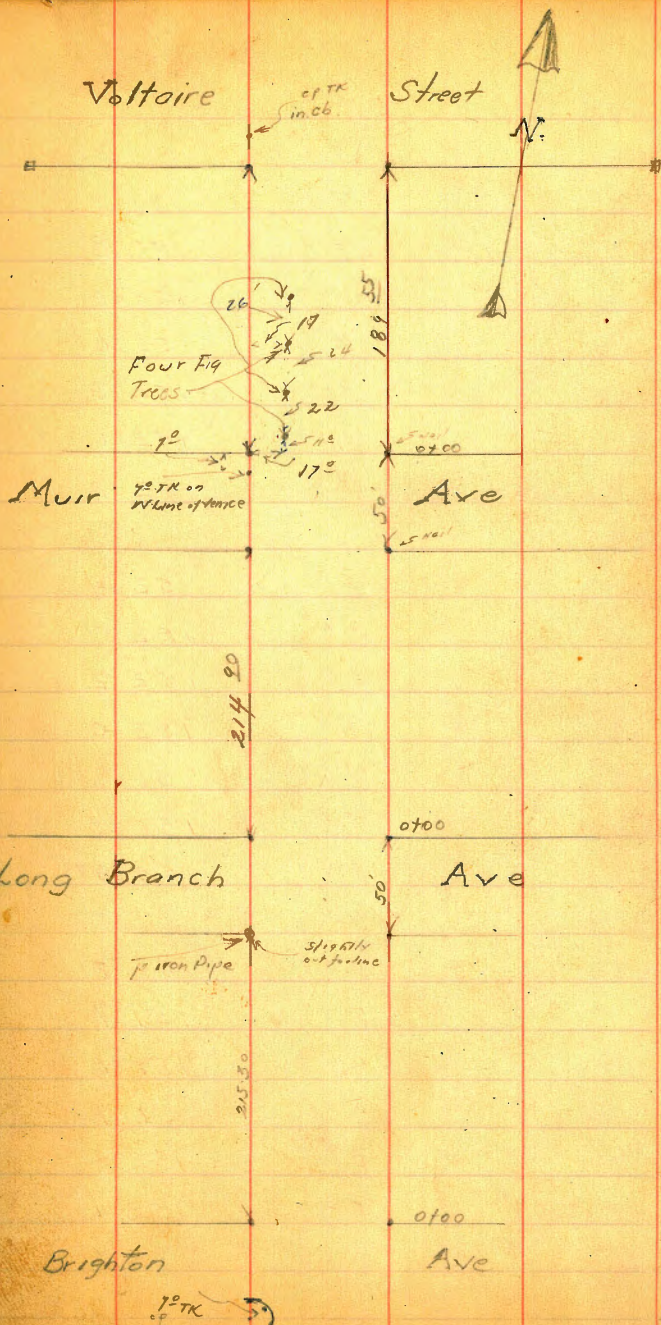 Voltaire Street
cp TK
in cb.
N.
26'
17
189 55
24
Four Fig
Trees
22
7°
17°
0+00
Muir Ave
7° TK on
W Line of Venice
50'
214 90
0+00
Long Branch Ave
50'
iron Pipe
slightly
out for line
215.50
0+00
Brighton Ave
7° TK